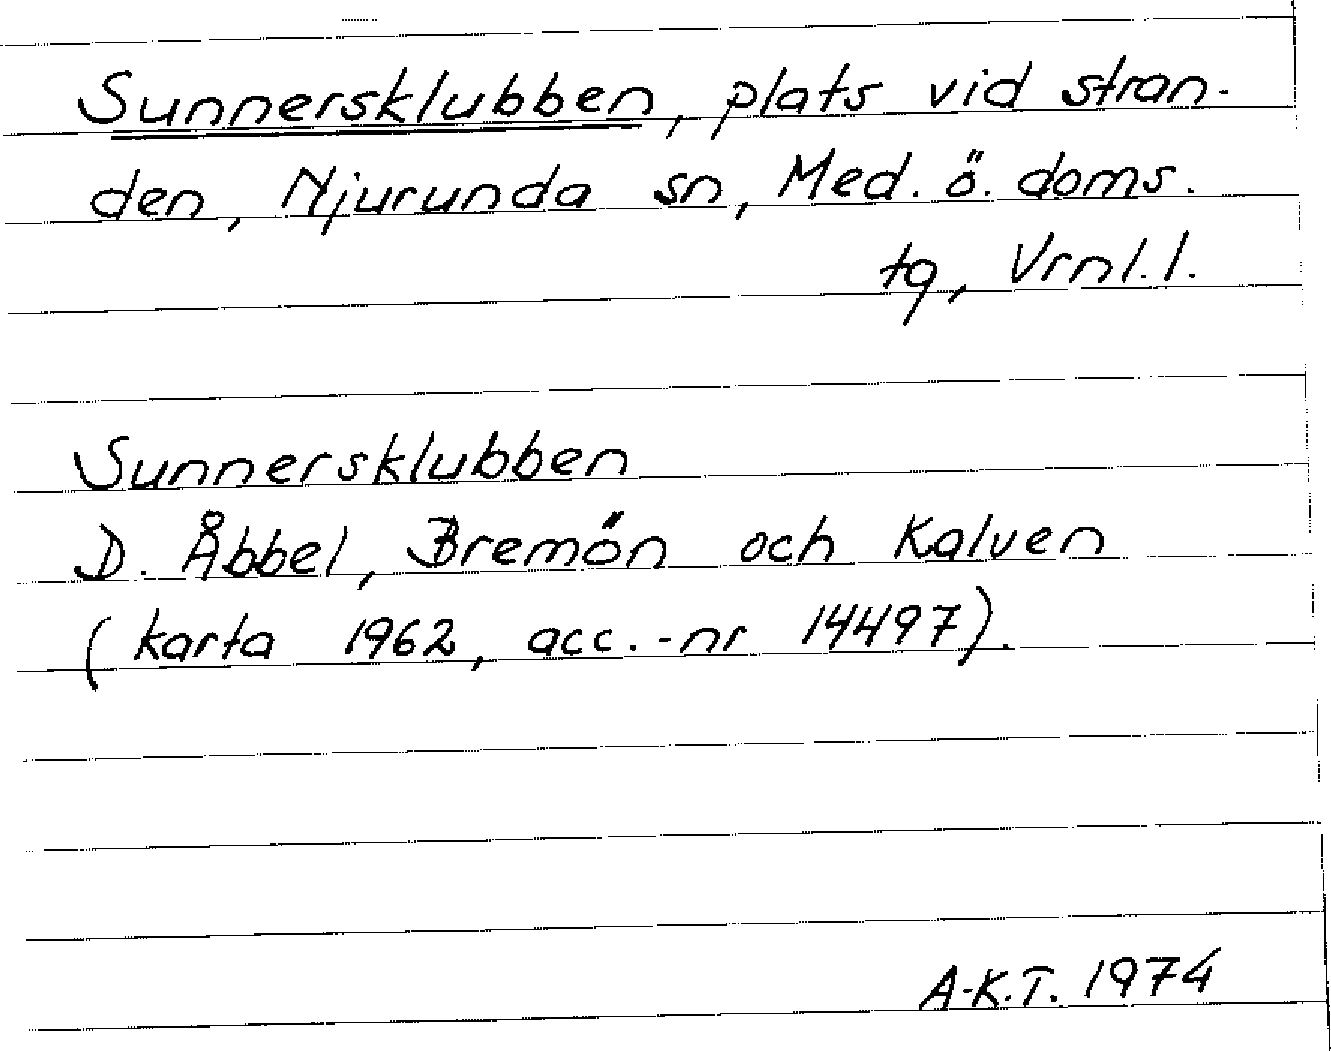 Sunnersklubben, plats vid stran-
den, Njurunda sn, Med. ö. doms.
tg, Vrnl. l.
Sunnersklubben
D. Åbbel, Bremön och Kalven
(karta 1962, acc.-nr 14497).
A-K.T. 1974